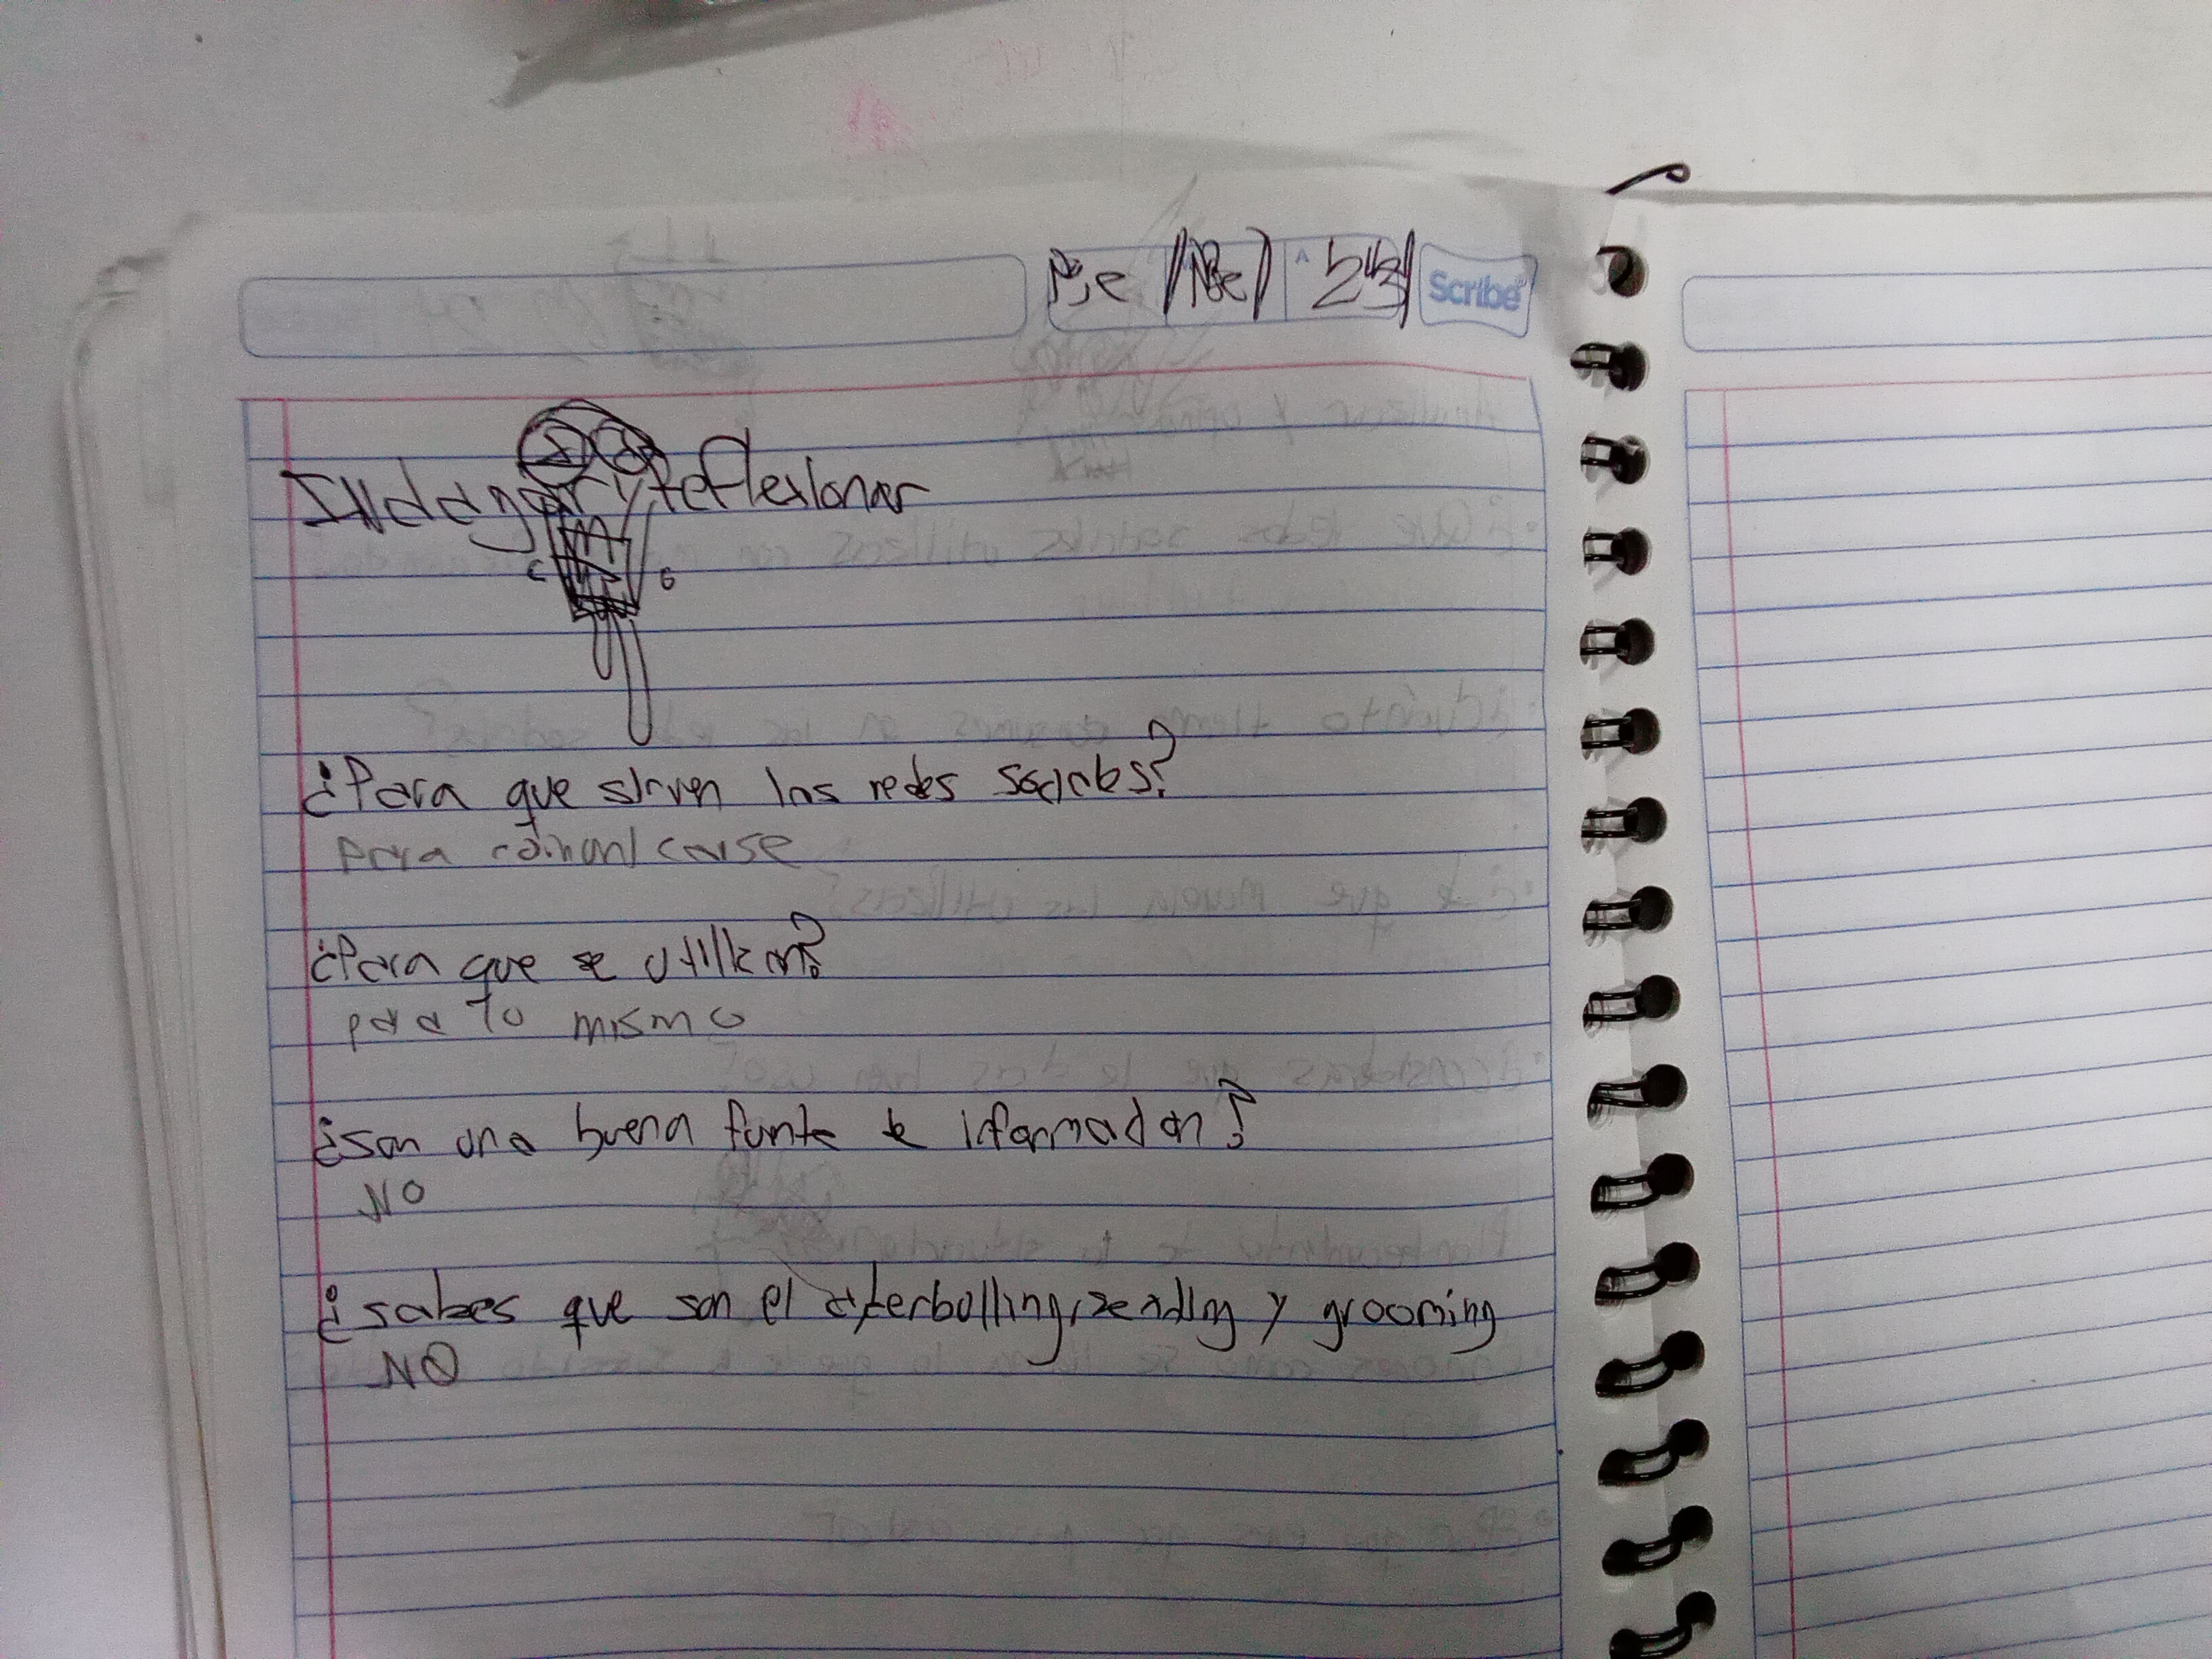 Scribe
INdagar y reflexionar
¿Para que sirven las redes sociales?
para comunicarse
¿Para que se utilizan?
para lo mismo
¿son una buena funte de iformacion?
NO
¿sabes que son el cyberbulling, sending y grooming
NO